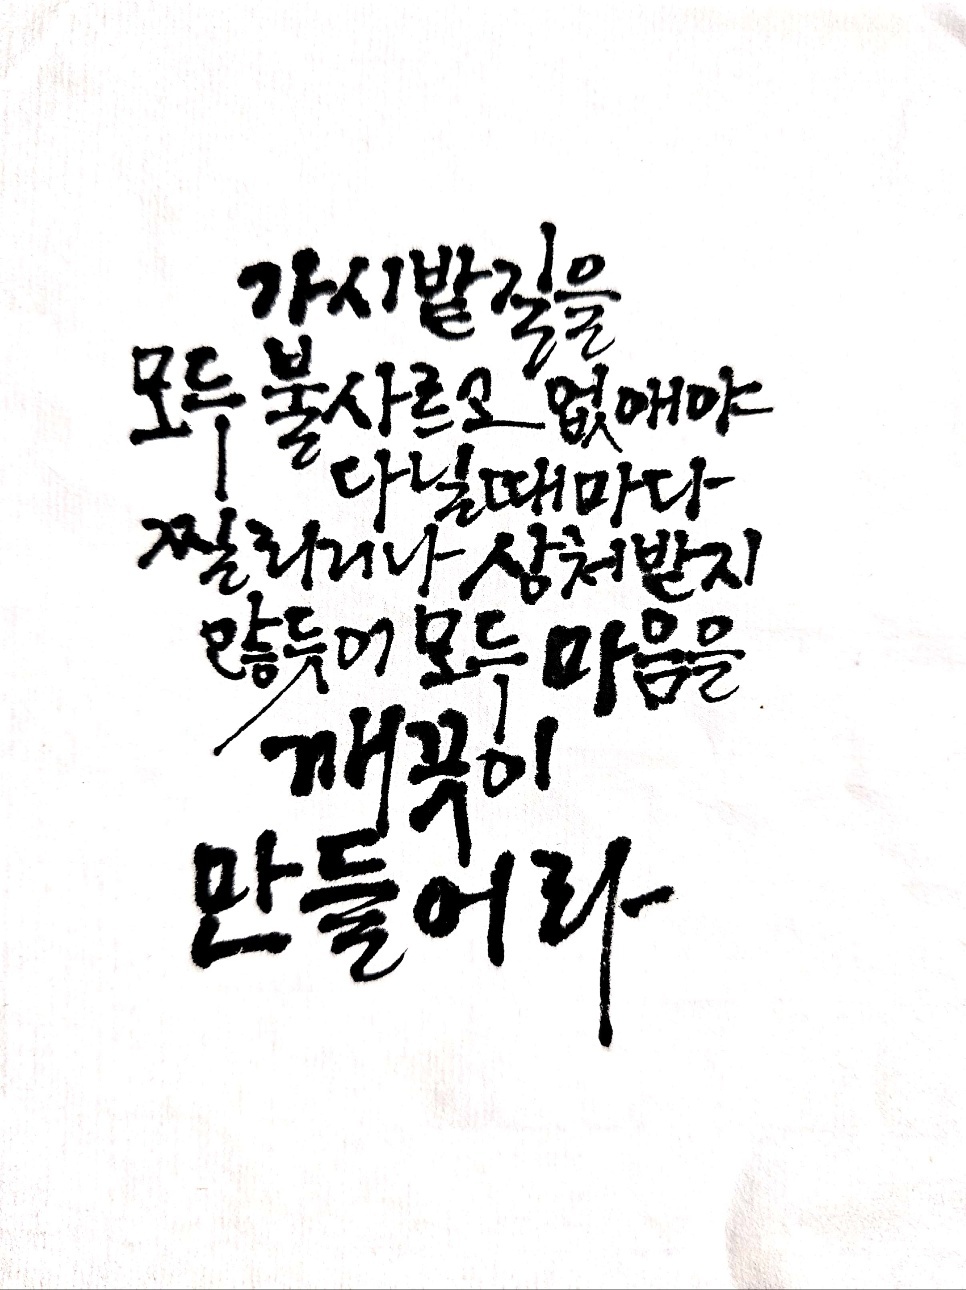 가시밭길을
모두 불사르고 없애야
다닐때마다
찔리거나 상처받지
않듯이 모두 마음을
깨끗이
만들어라